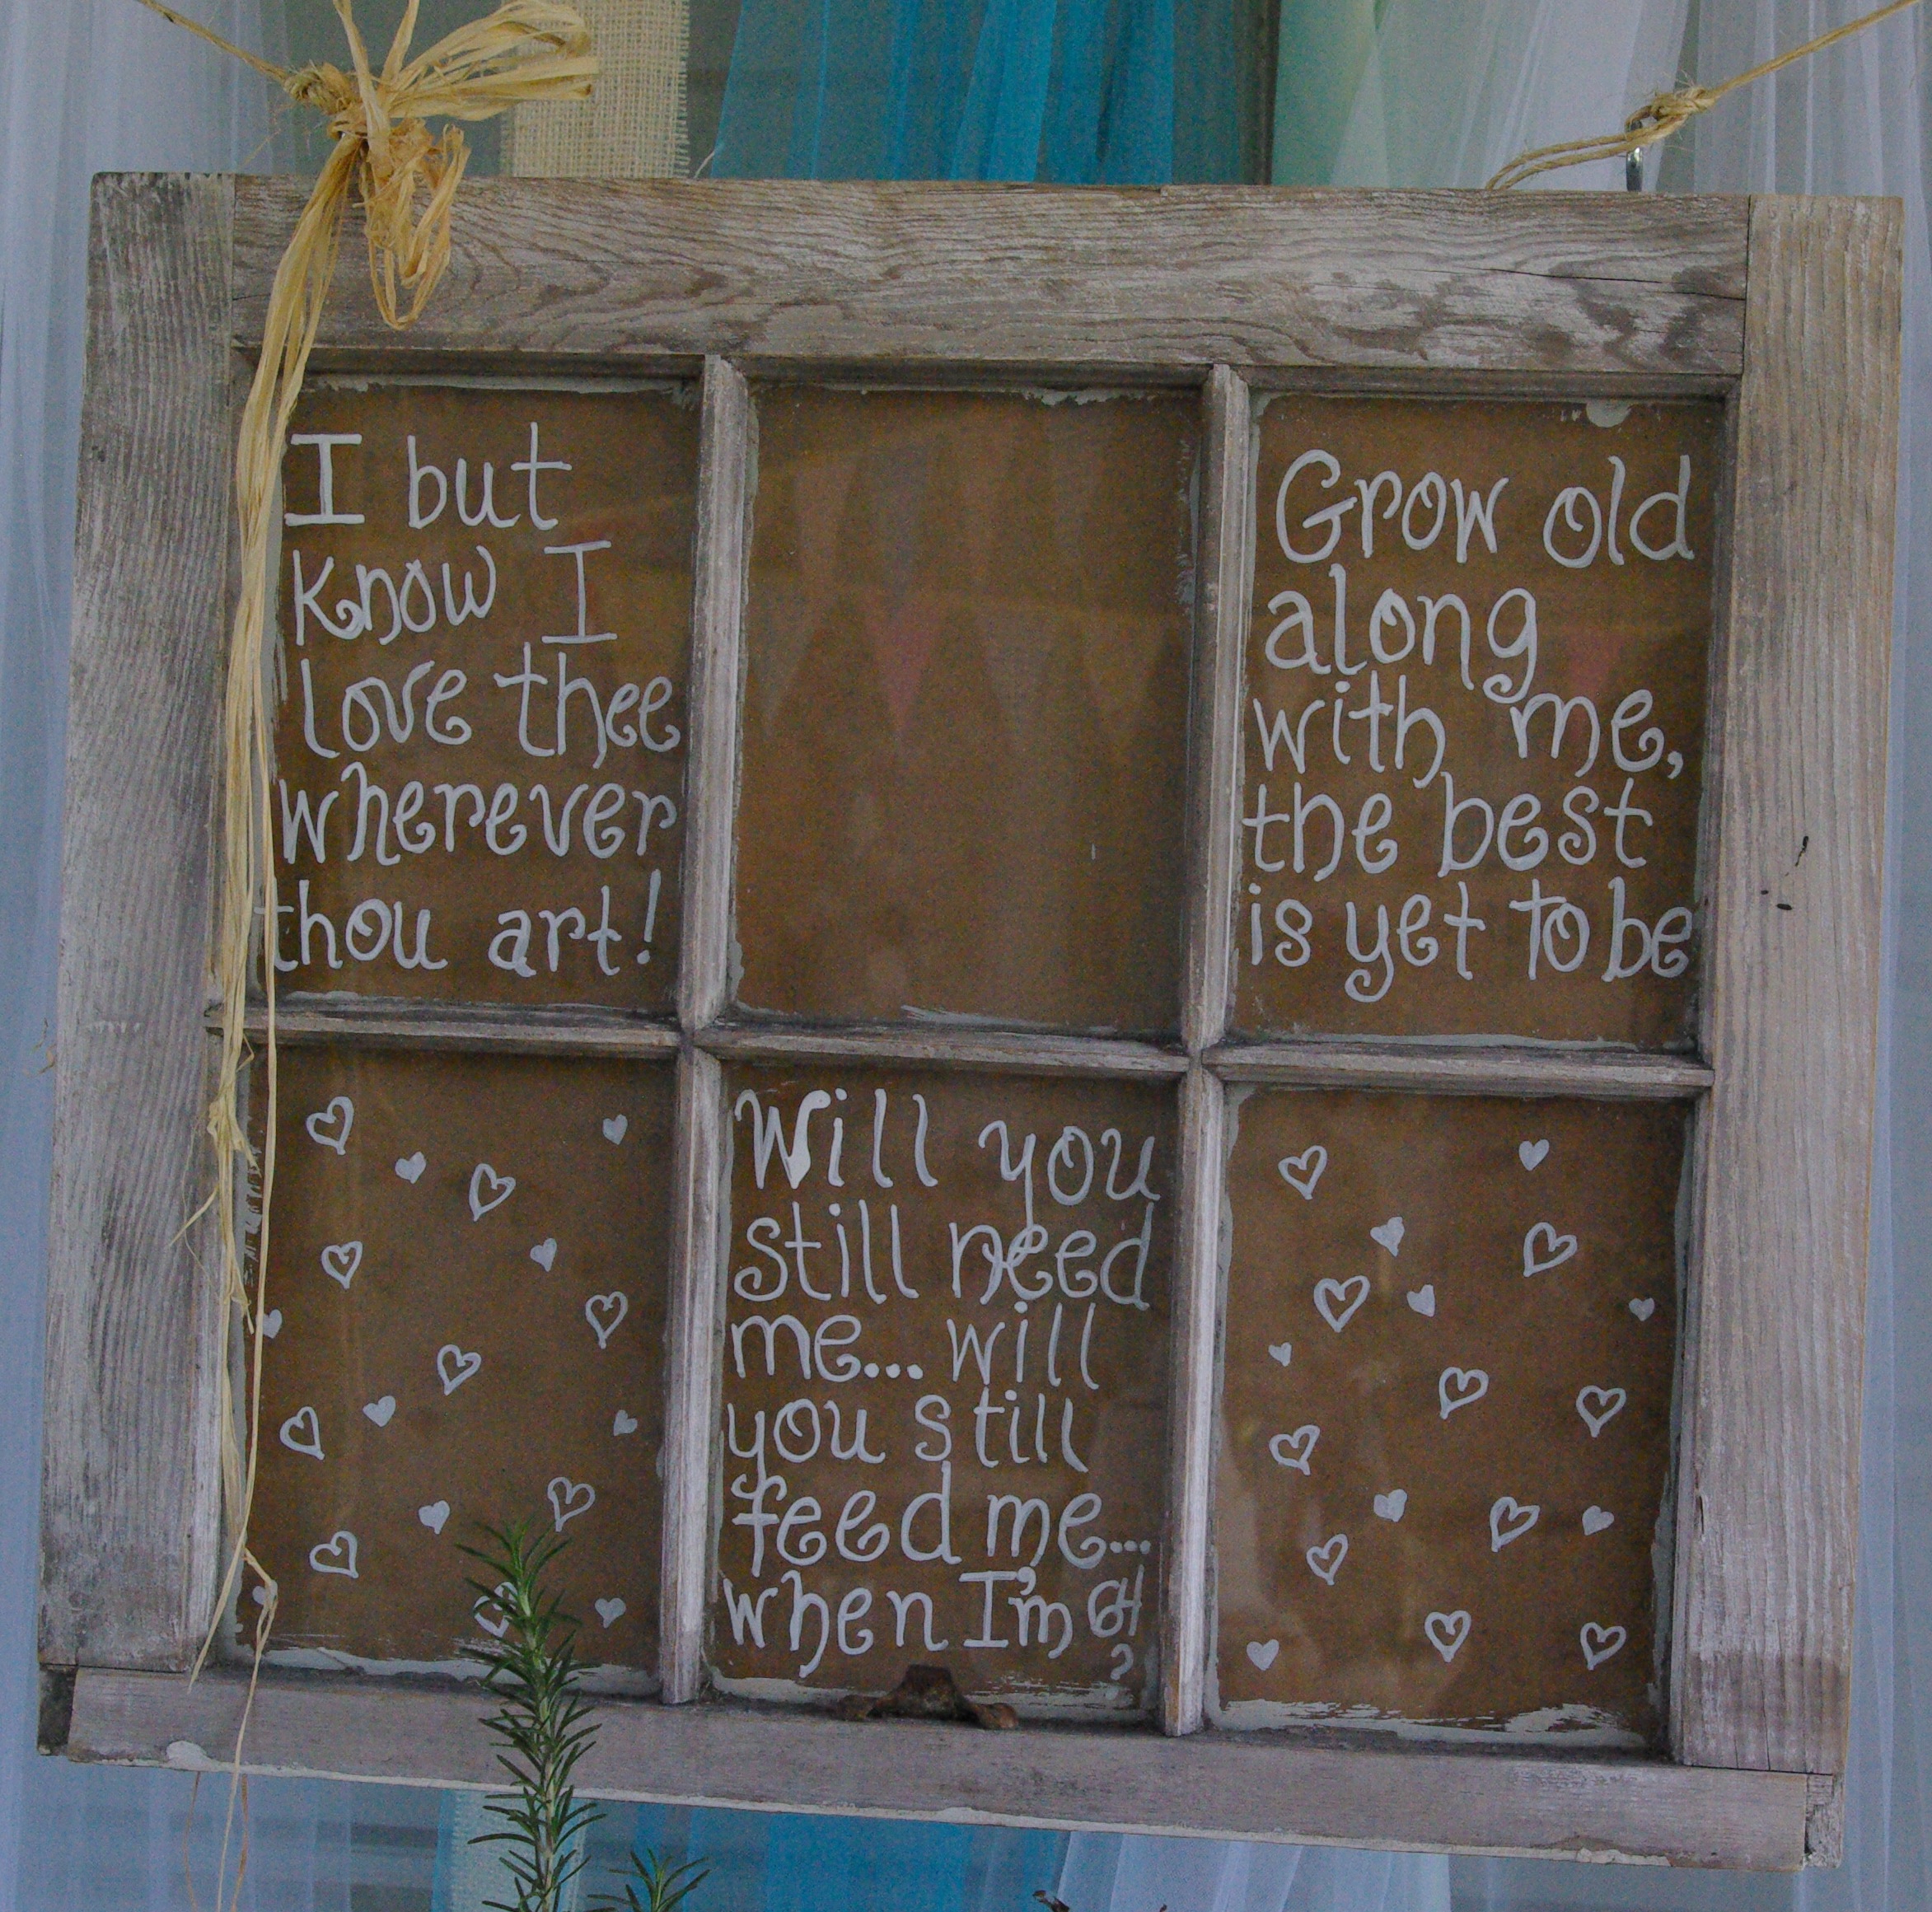 I but
know I
love thee
wherever
thou art!
Grow old
along
with me,
the best
is yet to be
Will you
still need
me... will
you still
feed me...
when I'm 64
?